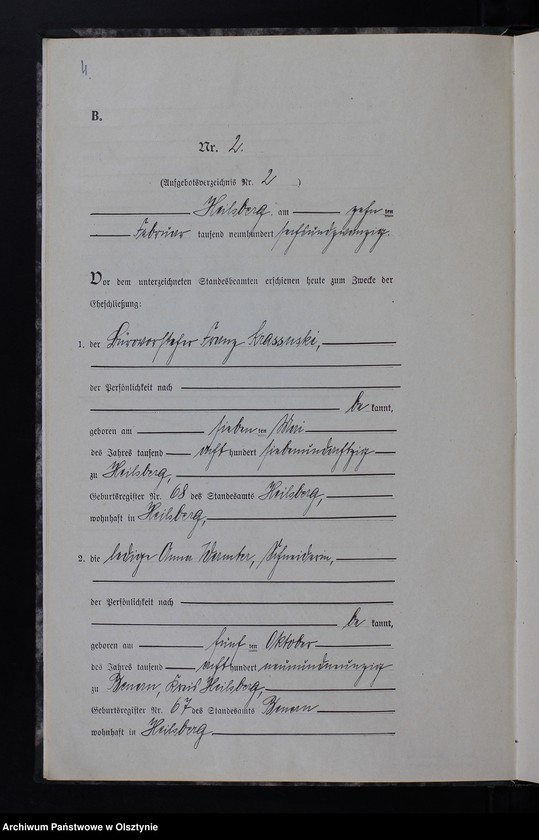 4.
B.
Nr. 2.
(Aufgebotsverzeichnis Nr. 2 )
Heilsberg, am zehn ten
Februar tausend neunhundert sechsundzwanzig.
Vor dem unterzeichneten Standesbeamten erschienen heute zum Zwecke der
Eheschließung:
1. der Bürovorsteher Franz
der Persönlichkeit nach
be kannt,
geboren am sieben ten Mai
des Jahres tausend acht hundert siebenundachtzig
zu Heilsberg,
Geburtsregister Nr. 68 des Standesamts Heilsberg,
wohnhaft in Heilsberg,
2. die ledige Anna Wermter, Schneiderin,
der Persönlichkeit nach
be kannt,
geboren am fünf ten Oktober
des Jahres tausend acht hundert neunundneunzig
zu Benern, Kreis Heilsberg,
Geburtsregister Nr. 67 des Standesamts Benern
wohnhaft in Heilsberg
Archiwum Państwowe w Olsztynie